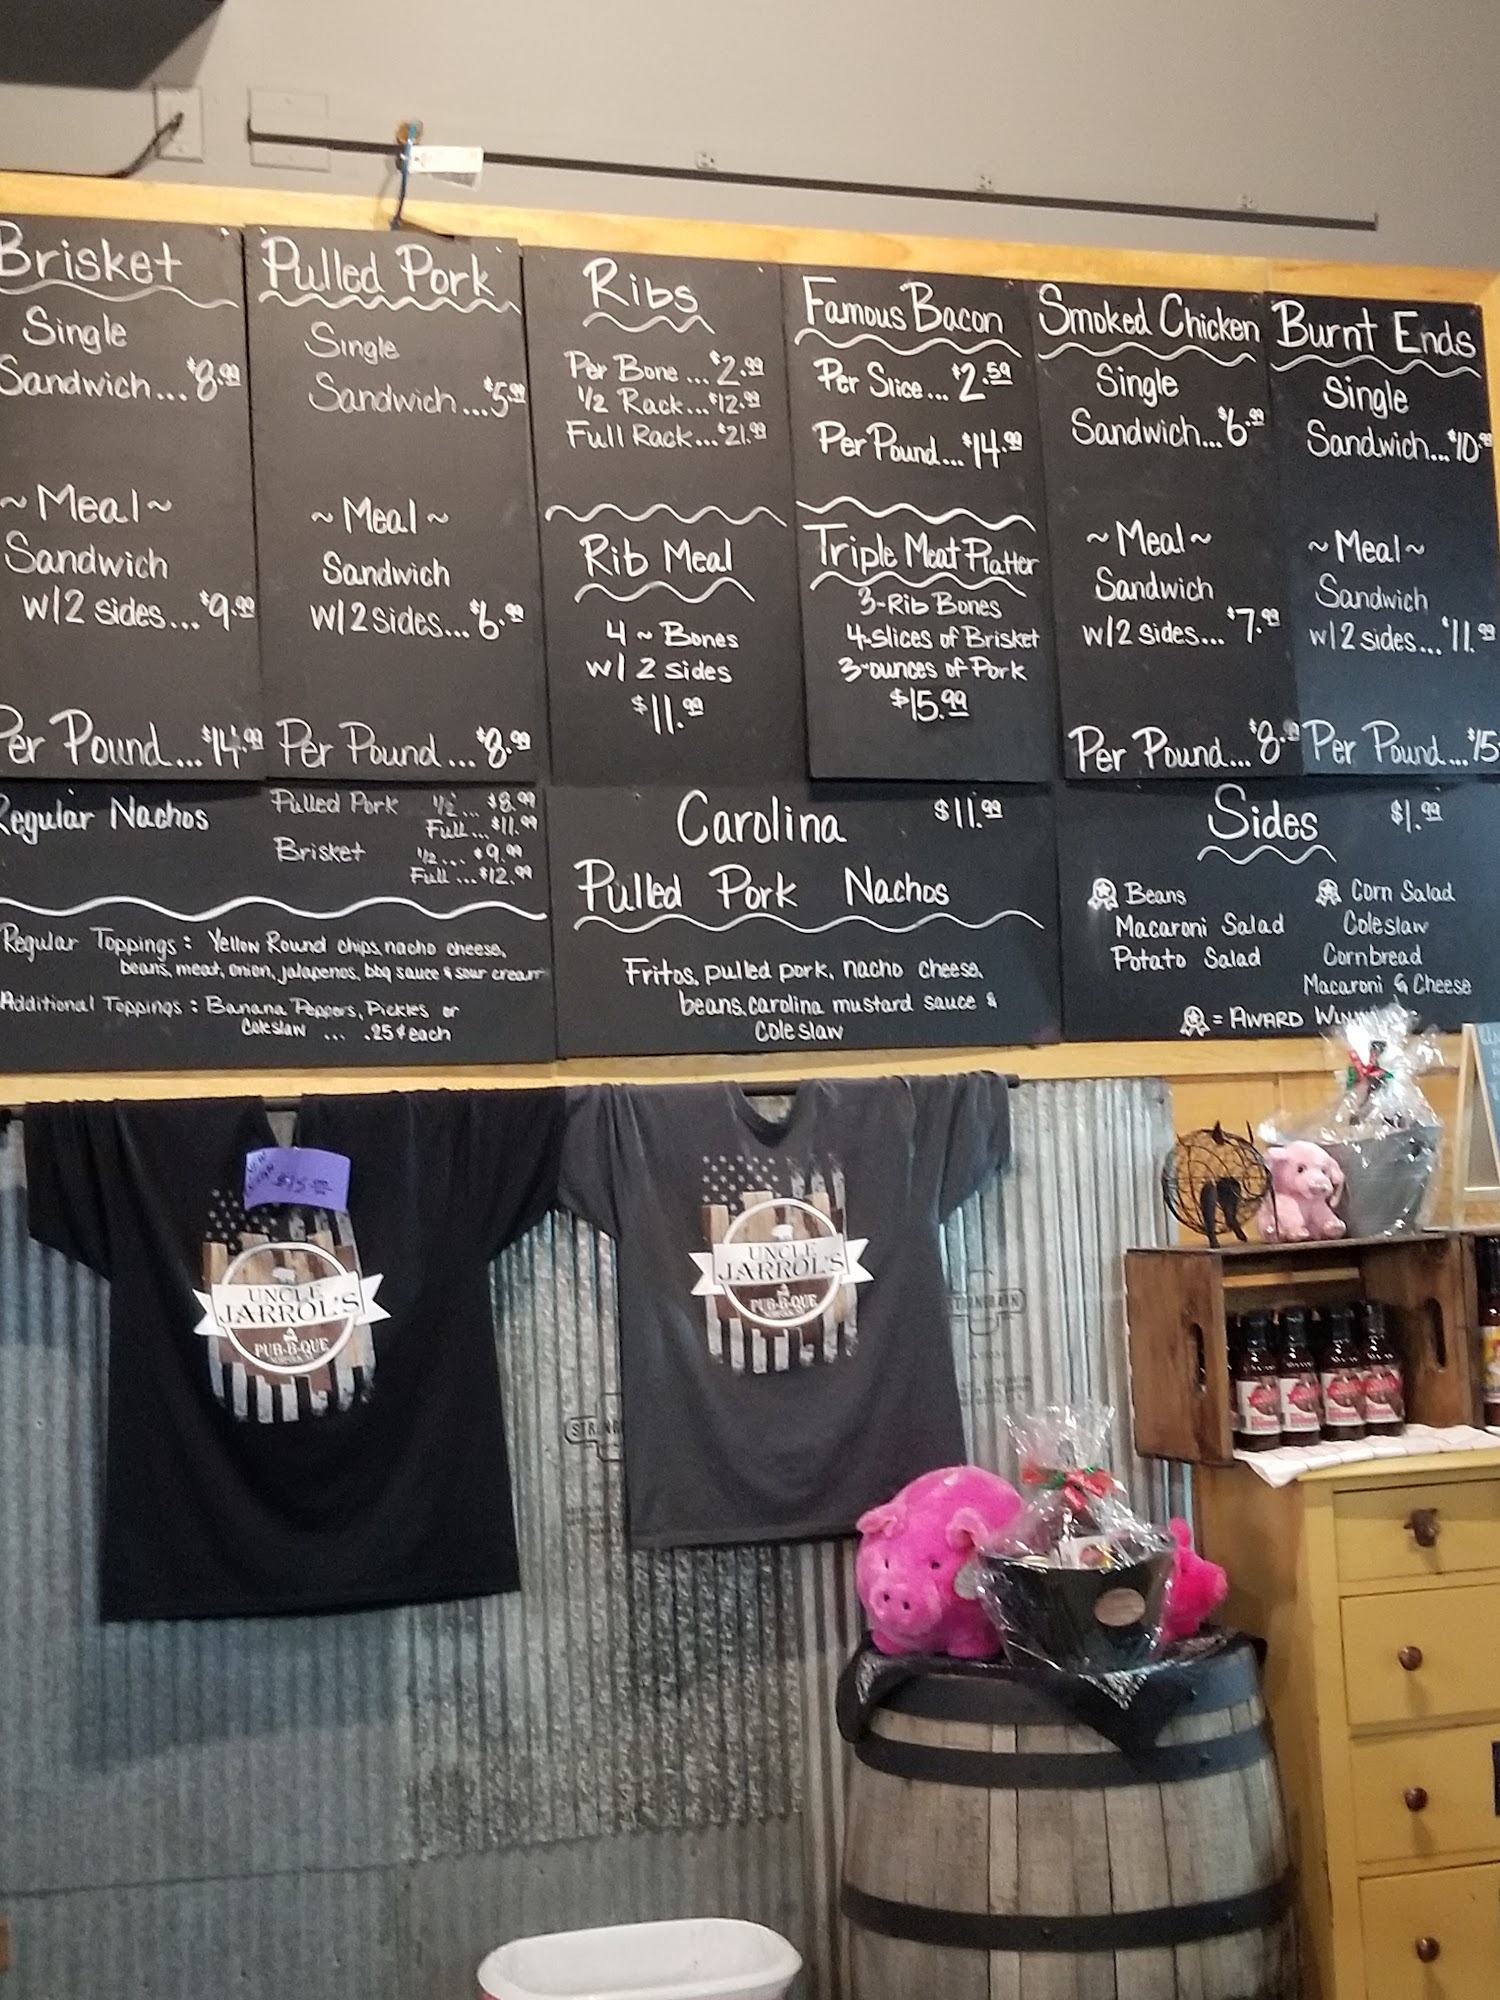 Brisket
Single
Sandwich...$8.99
~Meal~
Sandwich
w/2 sides...$9.99
Per Pound...$14.99
Pulled Pork
Single
Sandwich...$5.99
~Meal~
Sandwich
w/2 sides...$6.99
Per Pound...$8.99
Ribs
Per Bone...$2.99
1/2 Rack...$12.99
Full Rack...$21.99
Rib Meal
4~Bones
w/2 sides
$11.99
Famous Bacon
Per Slice...$2.59
Per Pound...$14.99
Triple Meat Platter
3-Rib Bones
4-slices of Brisket
3-ounces of Pork
$15.99
Smoked Chicken
Single
Sandwich...$6.99
~Meal~
Sandwich
w/2 sides...$7.99
Per Pound...$8.99
Burnt Ends
Single
Sandwich...$10.99
~Meal~
Sandwich
w/2 sides...$11.99
Per Pound...$15
Regular Nachos
Pulled Pork 1/2... $8.99
Full...$11.99
Brisket 1/2.... $9.99
Full...$12.99
Regular Toppings: Yellow Round chips, nacho cheese,
beans, meat, onion, jalapenos, bbq sauce & sour cream
Additional Toppings: Banana Peppers, Pickles or
Coleslaw .... .25¢ each
Carolina $11.99
Pulled Pork Nachos
Fritos, pulled pork, nacho cheese,
beans, carolina mustard sauce &
Coleslaw
Sides $1.99
Beans
Macaroni Salad
Potato Salad
Corn Salad
Coleslaw
Cornbread
Macaroni & Cheese
= AWARD
$15.00
UNCLE
JARROL'S
PUB-B-QUE
UNCLE
JARROL'S
PUB-B-QUE